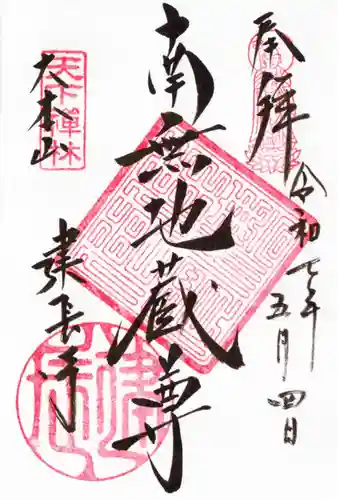 奉拝
令和七年五月四日
南無地蔵尊
天下禅林
大本山
建長寺